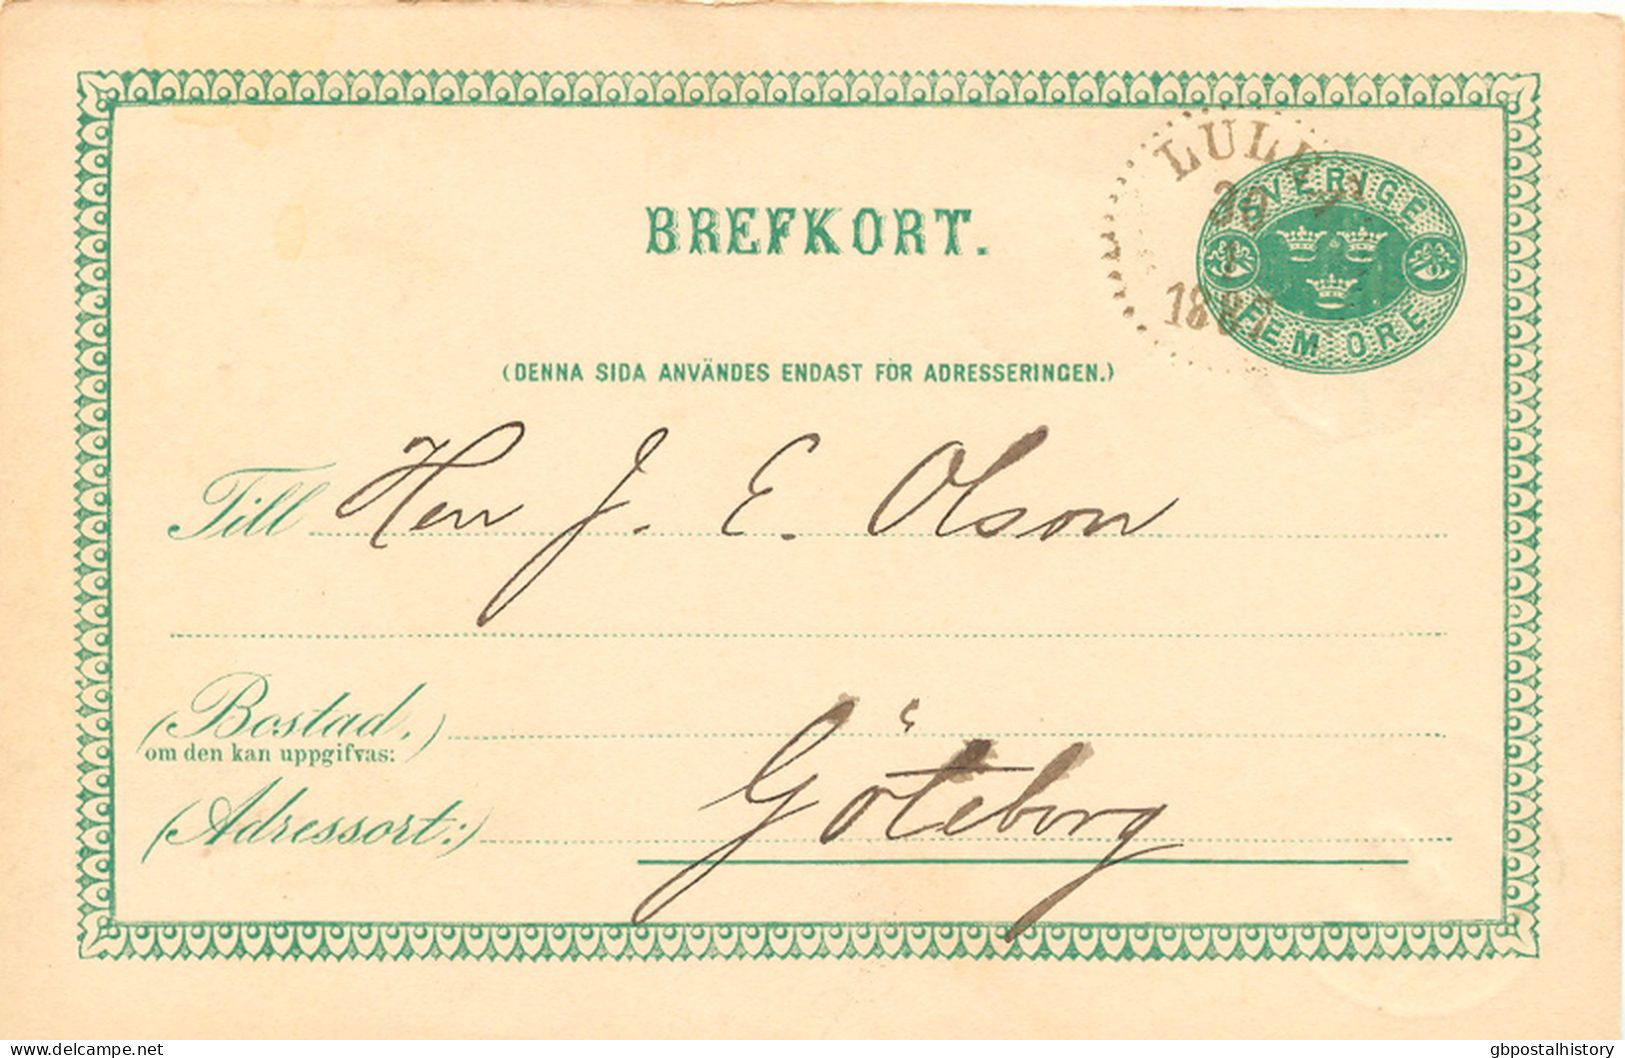 BREFKORT.
SVERIGE
FEM ÖRE
30
1
(DENNA SIDA ANVÄNDES ENDAST FÖR ADRESSERINGEN.)
Till Herr J. E. Olson
(Bostad,)
om den kan uppgifvas:
Göteborg
(Adressort:)
© Delcampe
gbpostalhistory